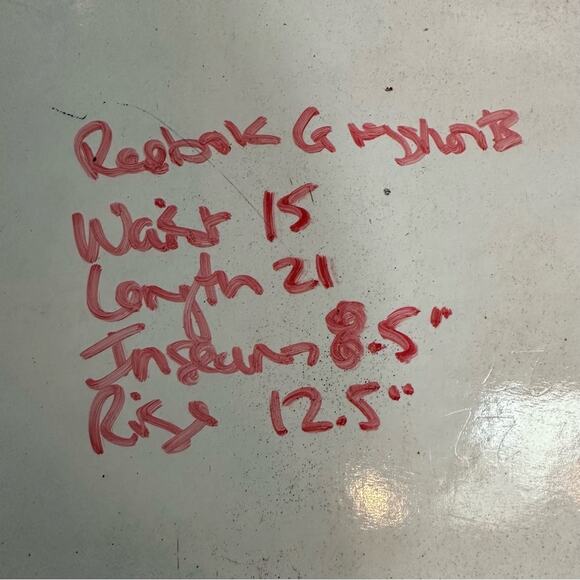 Reebok Gray shorts
Waist 15
Length 21
Inseam 8.5"
Rise 12.5"